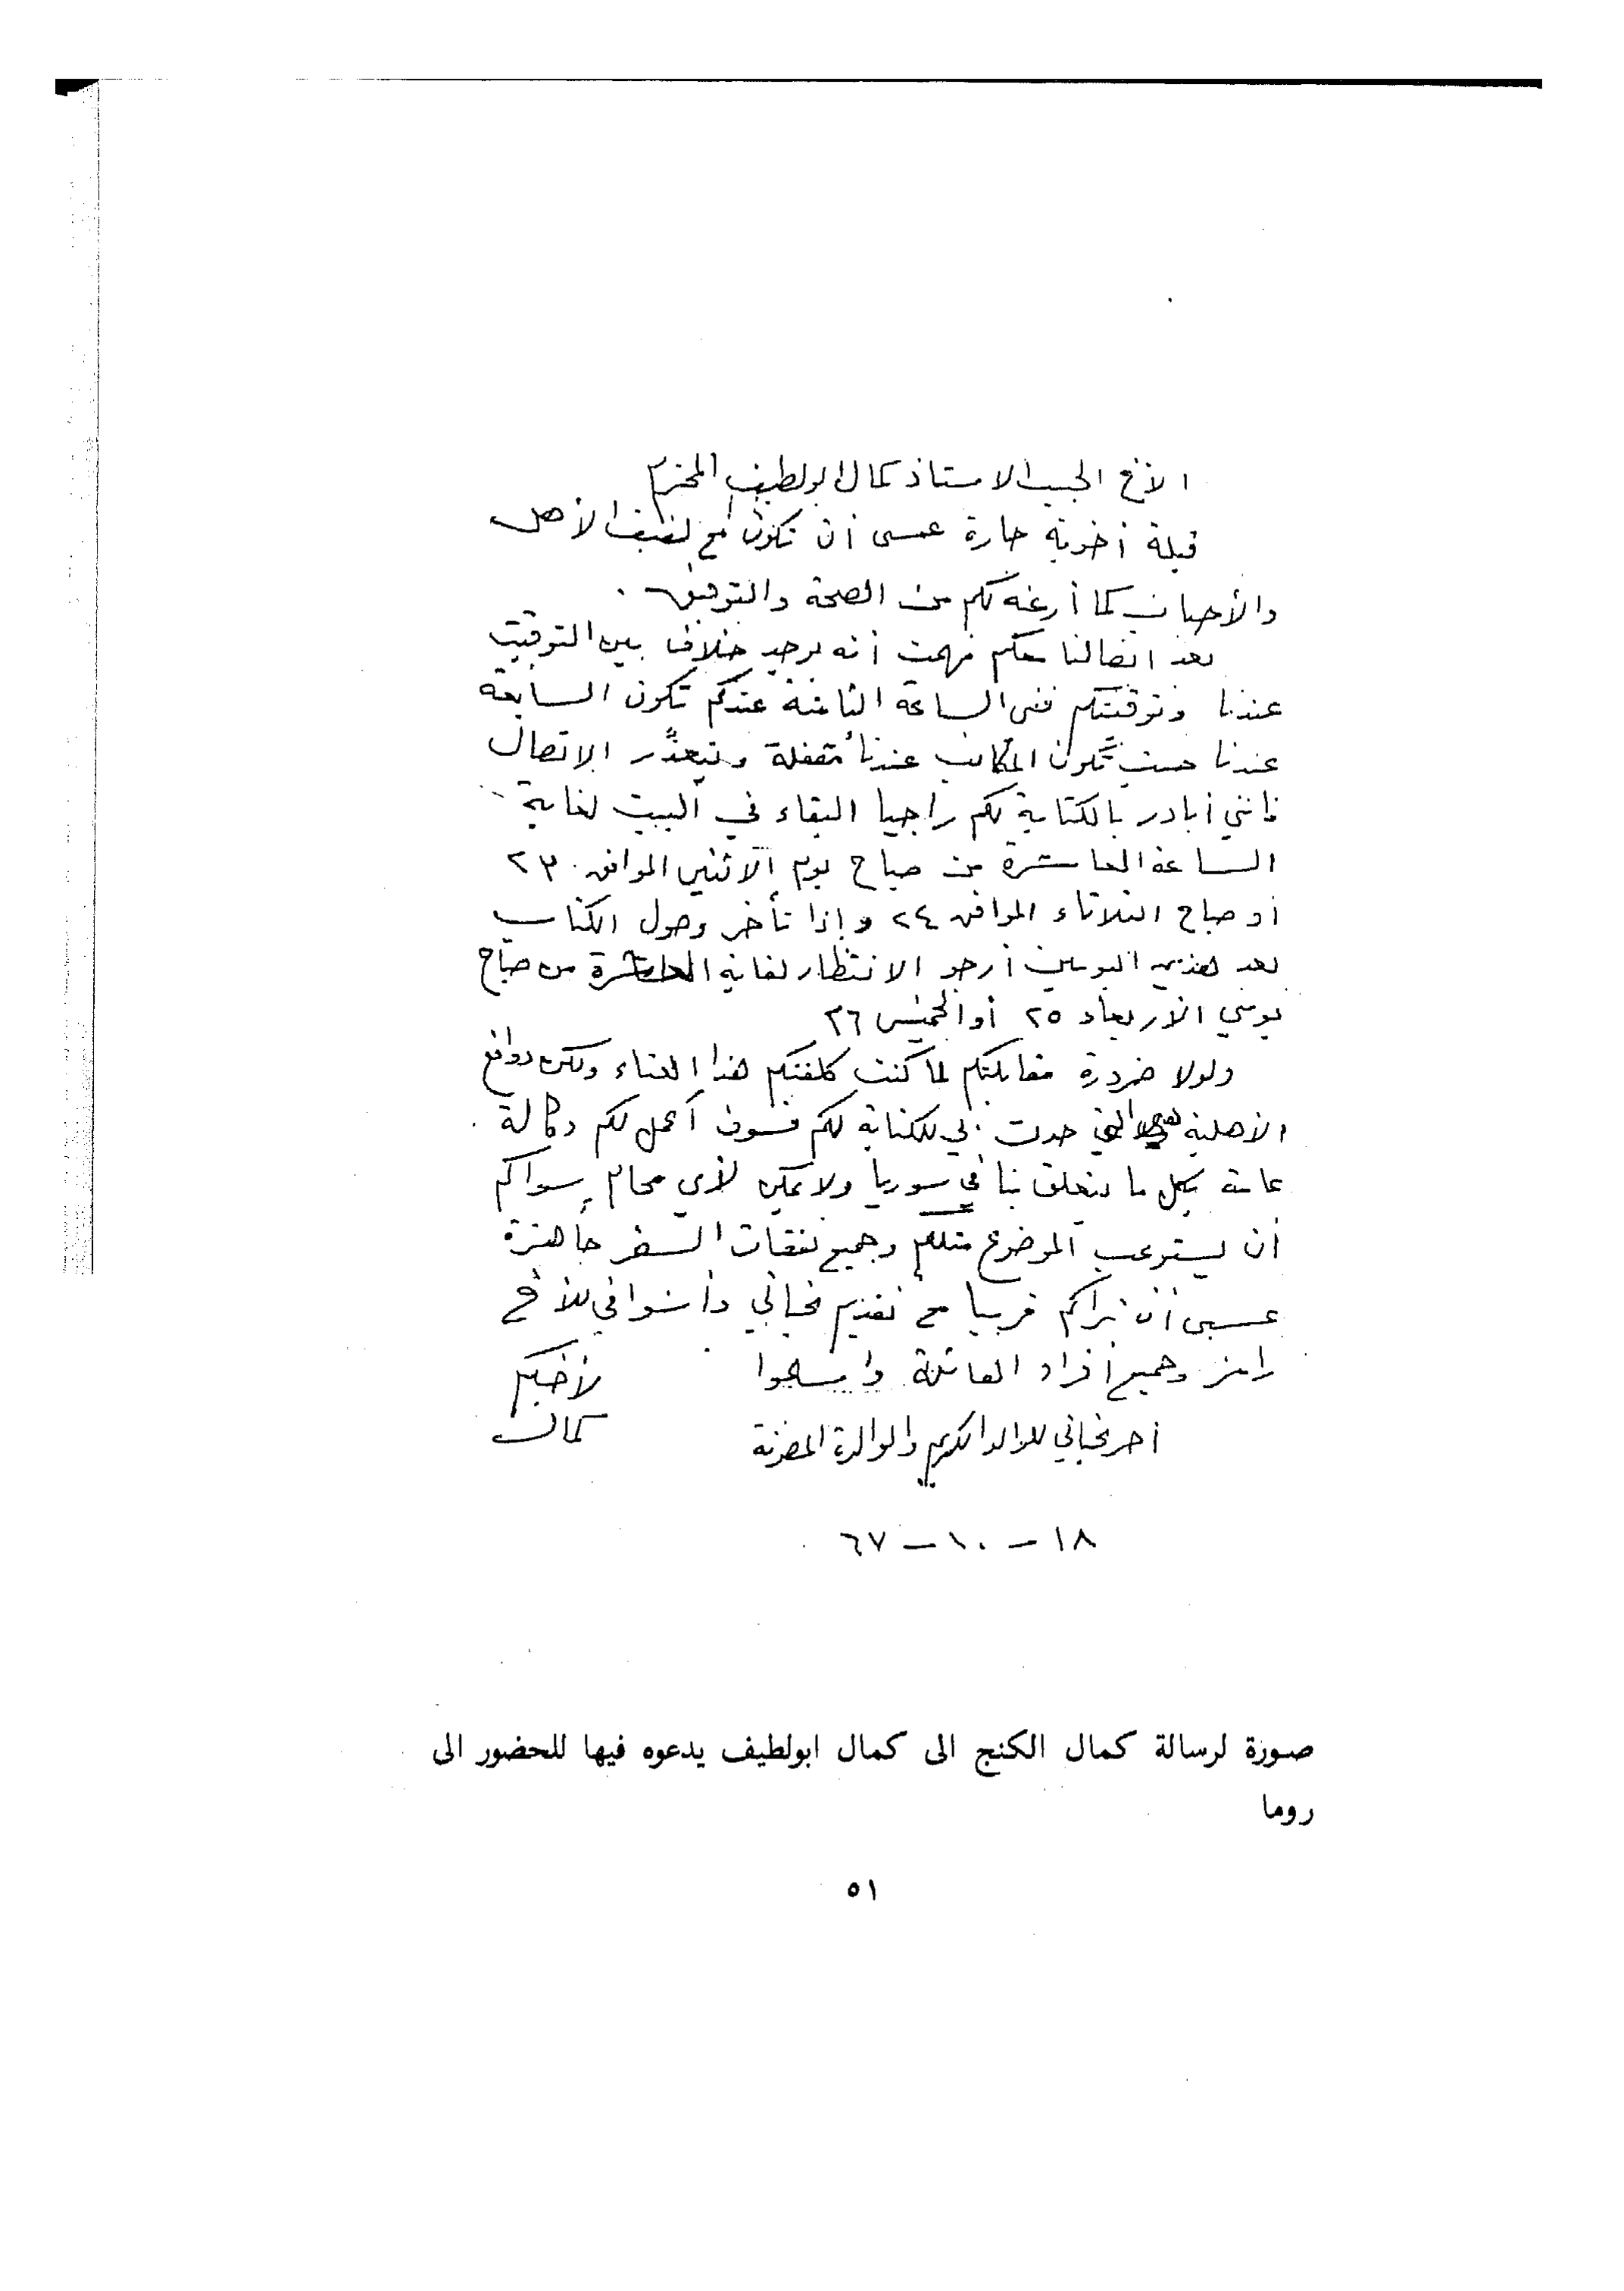 الأخ الحبيب الاستاذ كمال ابو لطيف المحترم
قبلة أخوية حارة عسى أن تكون مع لفيف الأهل
والأحباب كما أرغبه لكم من الصحة والتوفيق .
بعد اتصالنا معكم فهمت أنه يوجد خلاف بين التوقيت
عندنا وتوقيتكم ففي الساعة الثامنة عندكم تكون السابعة
عندنا حيث تكون المكاتب عندنا مقفلة ويتعذّر الاتصال
فانني أبادر بالكتابة لكم راجيا البقاء في البيت لغاية
الساعة العاشرة من صباح يوم الاثنين الموافق ٢٣
أو صباح الثلاثاء الموافق ٢٤ وإذا تأخر وصول الكتاب
بعد هذين اليومين أرجو الانتظار لغاية العاشرة من صباح
يومي الاربعاء ٢٥ أو الخميس ٢٦
ولولا ضرورة مقابلتكم لما كنت كلفتكم هذا العناء ولكن دوافع
الأهلية هي التي حدت بي للكتابة لكم فسوف أعمل لكم وكالة
عامة بكل ما يتعلق بنا في سوريا ولا يمكن لأي محام سواكم
أن يستوعب الموضوع مثلكم وجميع نفقات السفر جاهزة
عسى أن نراكم قريبا مع تقديم تحياتي وأشواقي للأخ
رامز وجميع أفراد العائلة واسلموا لأخيكم
كمال
أحر تحياتي للوالد الكريم والوالدة المصونة
١٨ - ١٠ - ٦٧
صورة لرسالة كمال الكنج الى كمال ابولطيف يدعوه فيها للحضور الى
روما
٥١